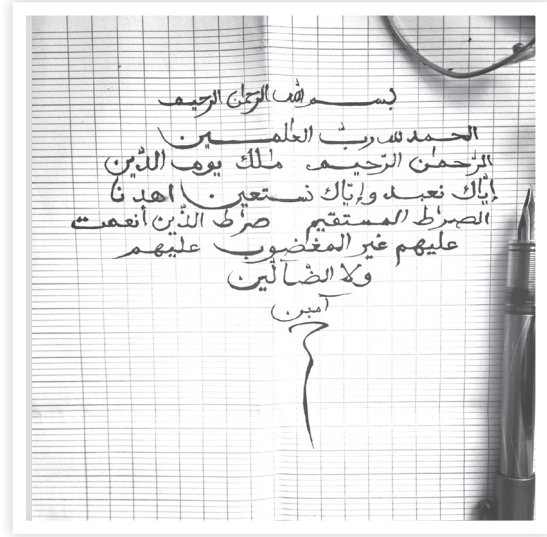 بسم الله الرحمن الرحيم
الحمد لله ربّ العلمين
الرّحمٰن الرّحيم ملك يوم الدّين
إيّاك نعبد وإيّاك نستعين اهدنا
الصرٰط المستقيم صرٰط الذّين أنعمت
عليهم غير المغضوب عليهم
ولا الضّآلّين
آمين